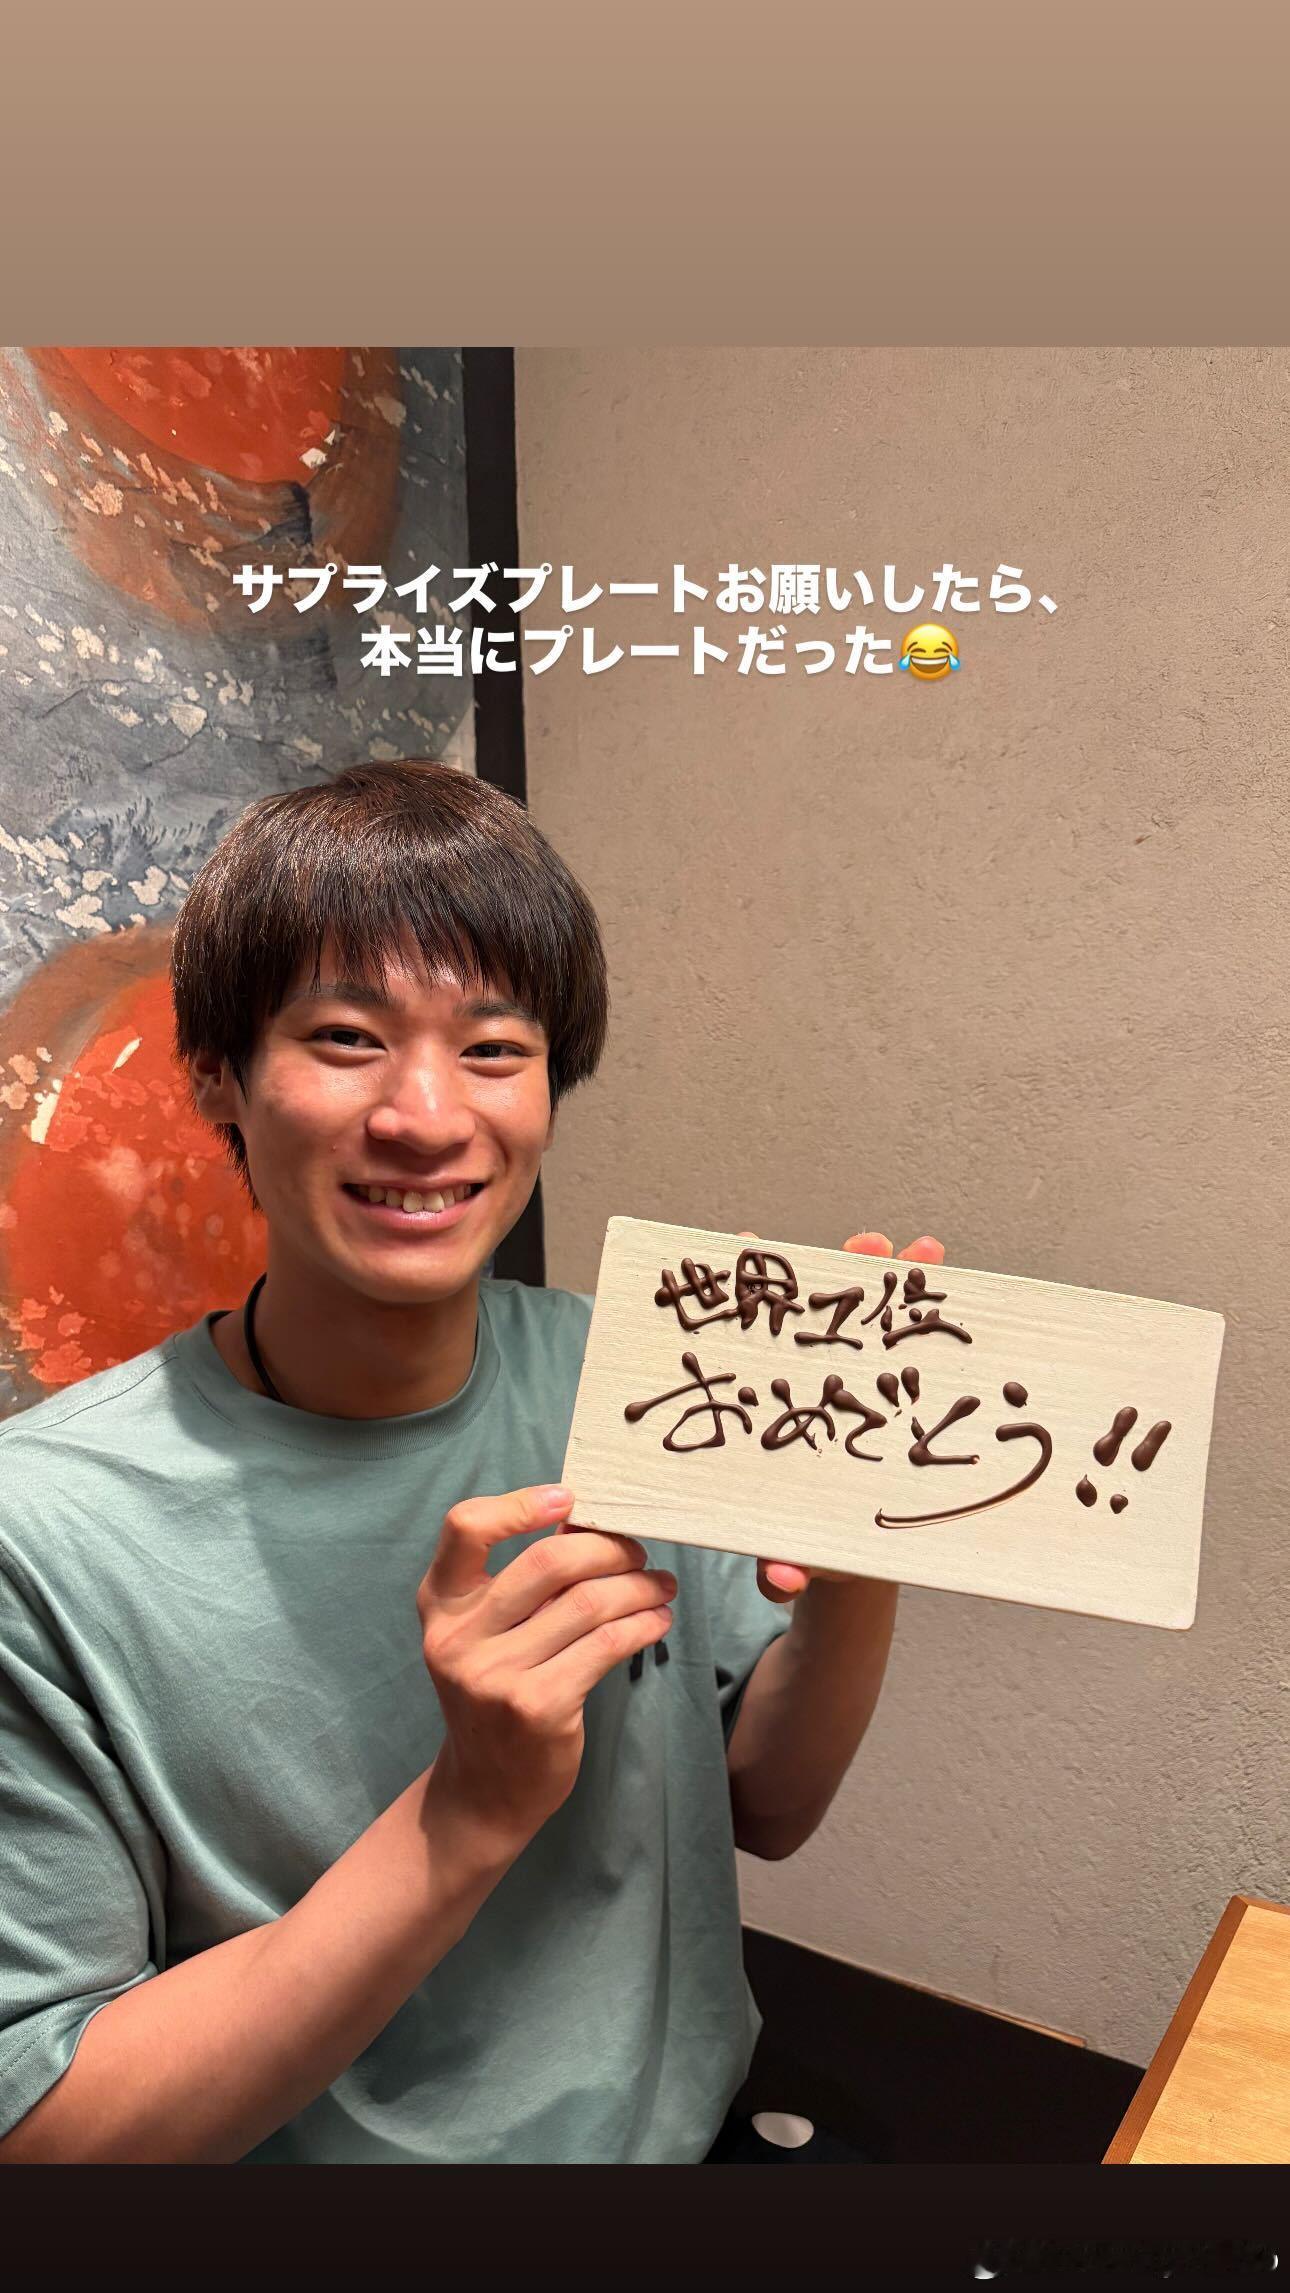 サプライズプレートお願いしたら、
本当にプレートだった😂
世界1位
おめでとう!!